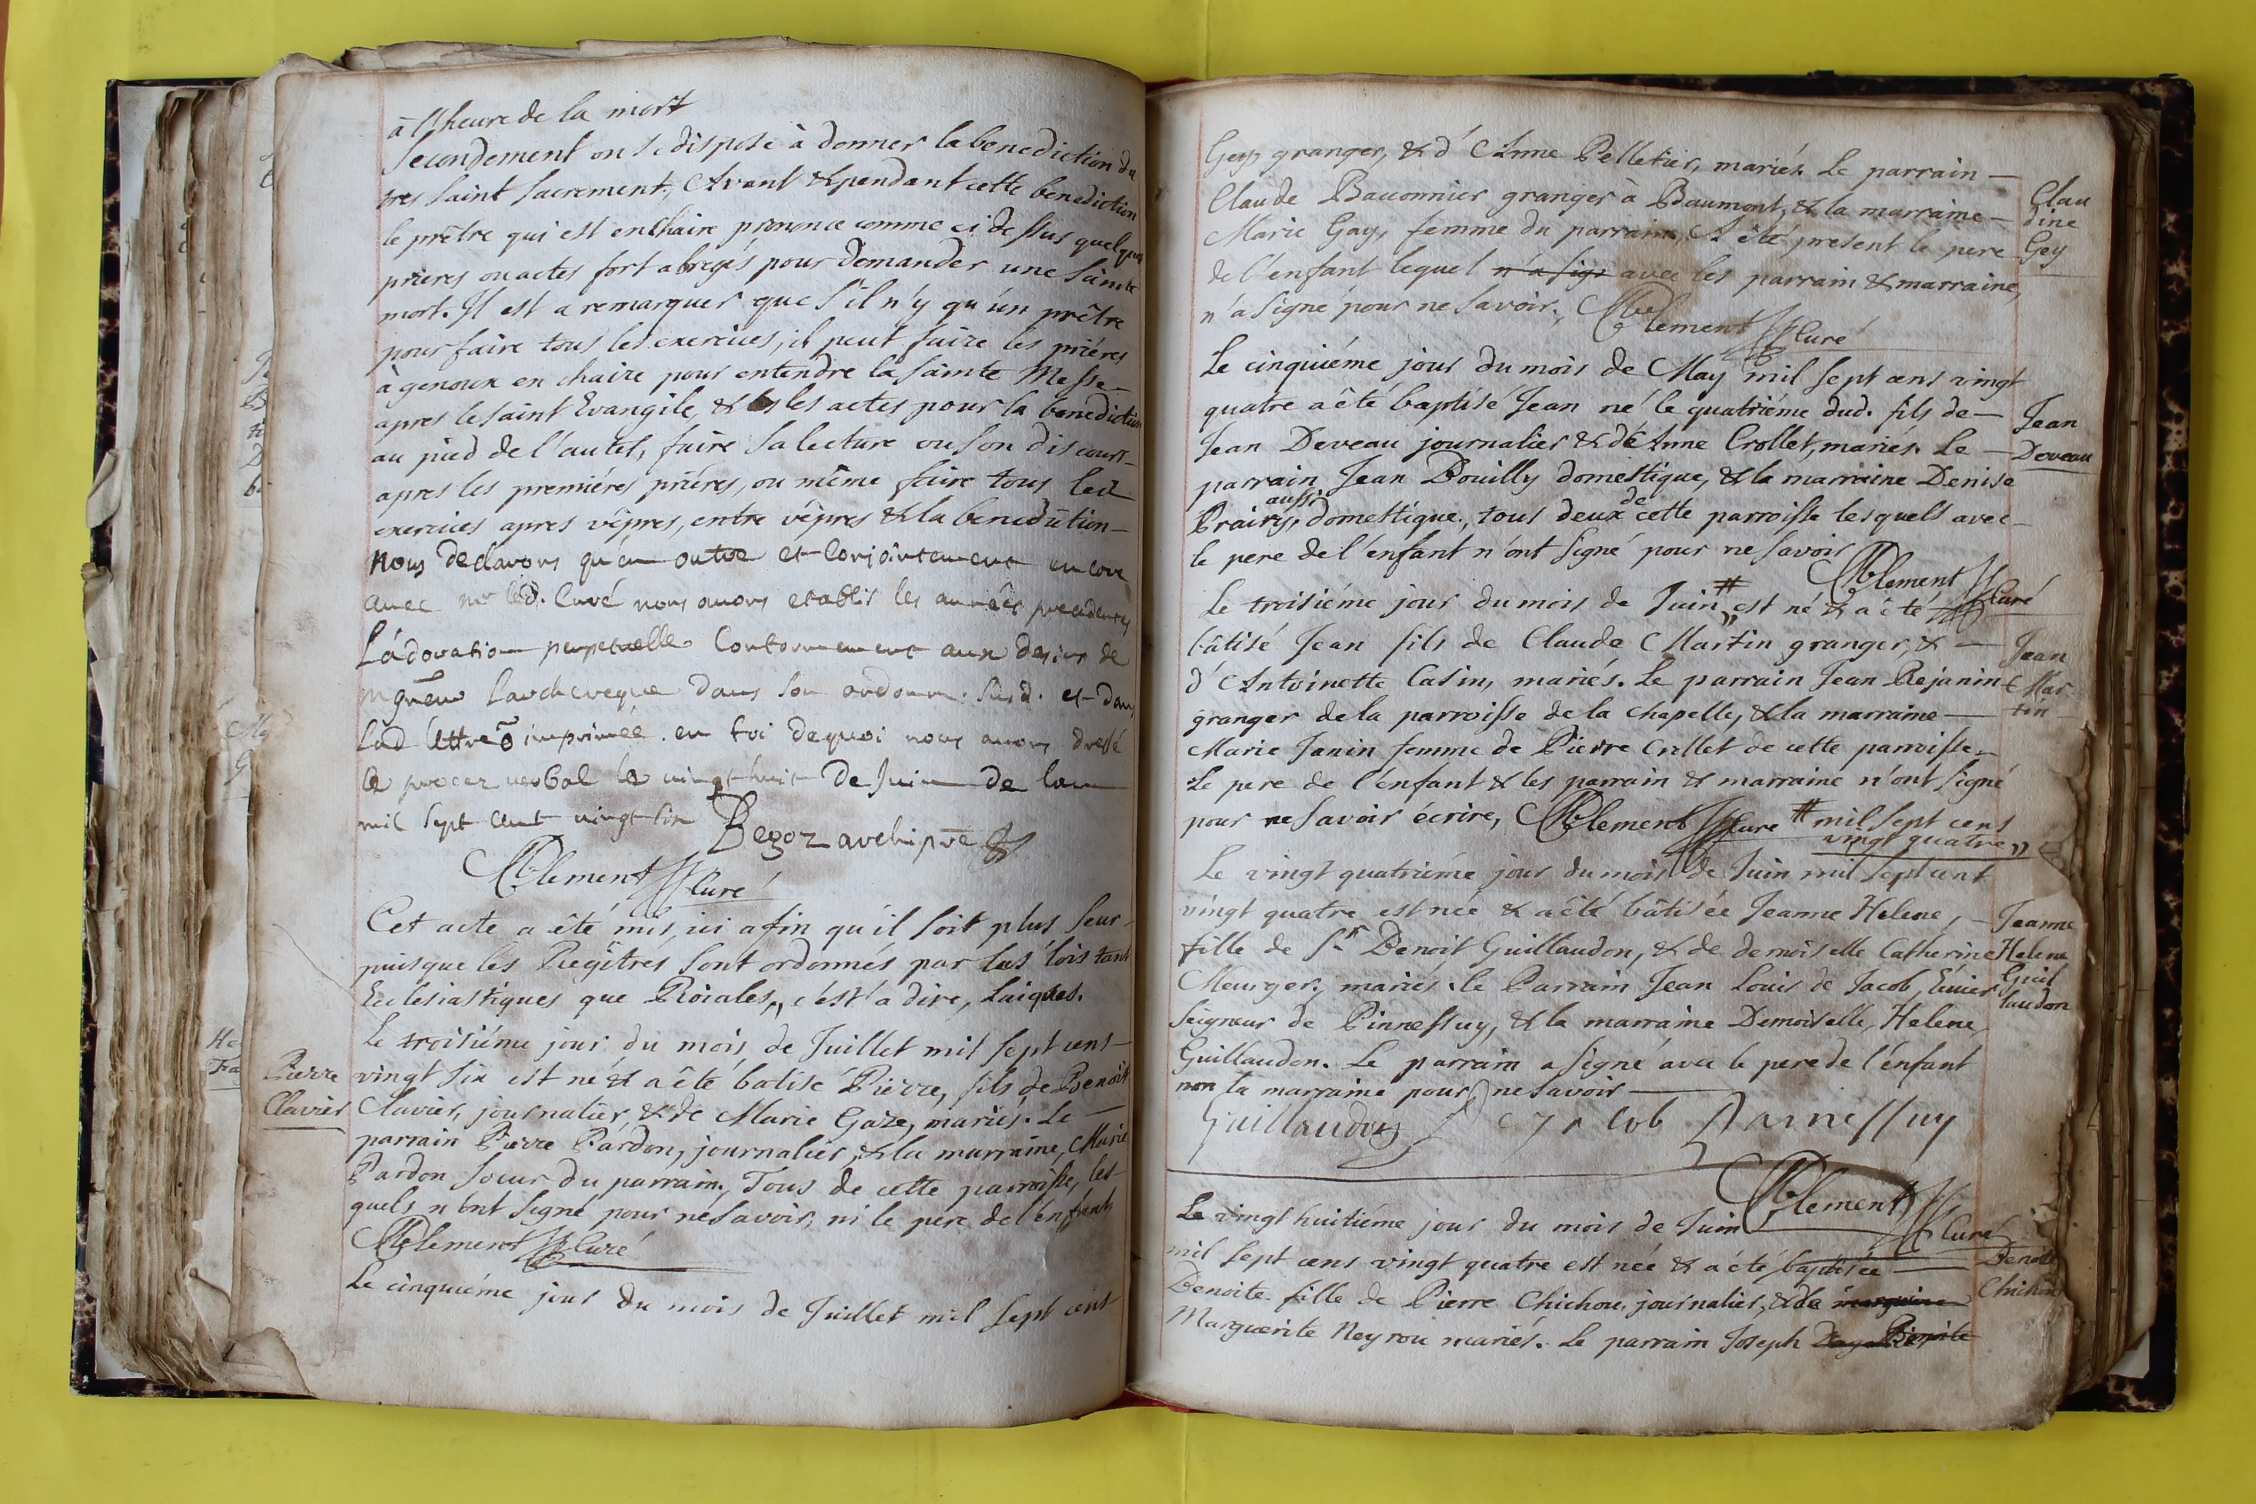 à l'heure de la mort
Secondement on se dispose à donner la benediction du
tres saint sacrement; Avant & pendant cette benediction
le prêtre qui est en chaire prononce comme ci dessus quelques
prieres ou actes fort abregés pour demander une sainte
mort. Il est a remarquer que s'il n'y qu'un prêtre
pour faire tous les exercices, il peut faire les priéres
à genoux en chaire pour entendre la sainte Messe
apres le saint Evangile, & les actes pour la benediction
au pied de l'autel, faire sa lecture ou son discours
apres les premiéres priéres, ou même faire tous les
exercices apres vêpres, entre vêpres & la benediction
nous declarons qu'en outre et conjointement encore
avec mr led. Curé nous avons etablis les années precedentes
L'adoration perpetuelle Conformement aux desirs de
mgneur larcheveque dans son ordonn. susd. et dans
Lad lettre imprimée. en foi dequoi nous avons dressé
le procez verbal le vingt huit de Juin de lan
mil sept cent vingt six Begoz archipre
Clement Curé
Cet acte a êté mis ici afin qu'il soit plus seur
puisque les Regîtres sont ordonnés par les lois tant
Ecclesiastiques que Roiales, c'est a dire, Laiques.
Le troisiéme jour du mois de Juillet mil sept cens
Pierre
Clavier
vingt six est né & a êté batisé Pierre, fils de Benoit
Clavier, journalier & de Marie Gaze, mariés. Le
parrain Pierre Pardon, journalier, & la marraine, Marie
Pardon soeur du parrain. Tous de cette parroisse, les
quels n'ont signé pour ne savoir, ni le pere de l'enfant
Clement Curé
Le cinquiéme jour du mois de Juillet mil sept cens
Gey, granger, & d'Anne Pelletier, mariés. Le parrain
Claude Bauonnier granger à Baumont, & la marraine
Marie Gay, femme du parrain, A êté present le pere
de l'enfant lequel n'a sign avec les parrain & marraine,
n'a signé pour ne savoir. Clement Curé
Clau
dine
Gey
Le cinquiéme jour du mois de May mil sept cens vingt
quatre a êté baptisé Jean né le quatriéme dud. fils de
Jean Deveau journalier & d'Anne Crollet, mariés. Le
parrain Jean Bouilly domestique, & la marraine Denise
aussi de
Prairy, domestique., tous deux cette parroisse lesquels avec
le pere de l'enfant n'ont signé pour ne savoir Clement Curé
Jean
Deveau
Le troisiéme jour du mois de Juin # est né & a êté
bâtisé Jean fils de Claude Martin granger, &
d'Antoinette Casin, mariés. Le parrain Jean Rejanin
granger de la parroisse de la chapelle, & la marraine
Marie Janin femme de Pierre Crellet de cette parroisse
Le pere de l'enfant & les parrain & marraine n'ont signé
pour ne savoir écrire, Clement Curé # mil sept cens
vingt quatre,,
Jean
Mar
tin
Le vingt quatriéme jour du mois de Juin mil sept cent
vingt quatre est née & a êté bâtisée Jeanne Helene,
fille de Sr Benoit Guillaudon, & de demoiselle Catherine
Meurger, mariés. le Parrain Jean Louis de Jacob,
Seigneur de Pinnessuy, & la marraine Demoiselle, Helene
Guillaudon. Le parrain a signé avec le pere de l'énfant
non la marraine pour ne savoir
Jeanne
Helene
Guil
laudon
Guillaudon
Clement Curé
Le vingt huitiéme jour du mois de Juin
mil sept cens vingt quatre est née & a êté baptisée
Benoite fille de Pierre Chichou, journalier, & de
Marguerite Neyrou mariés. Le parrain Joseph
Benoite
Chichou